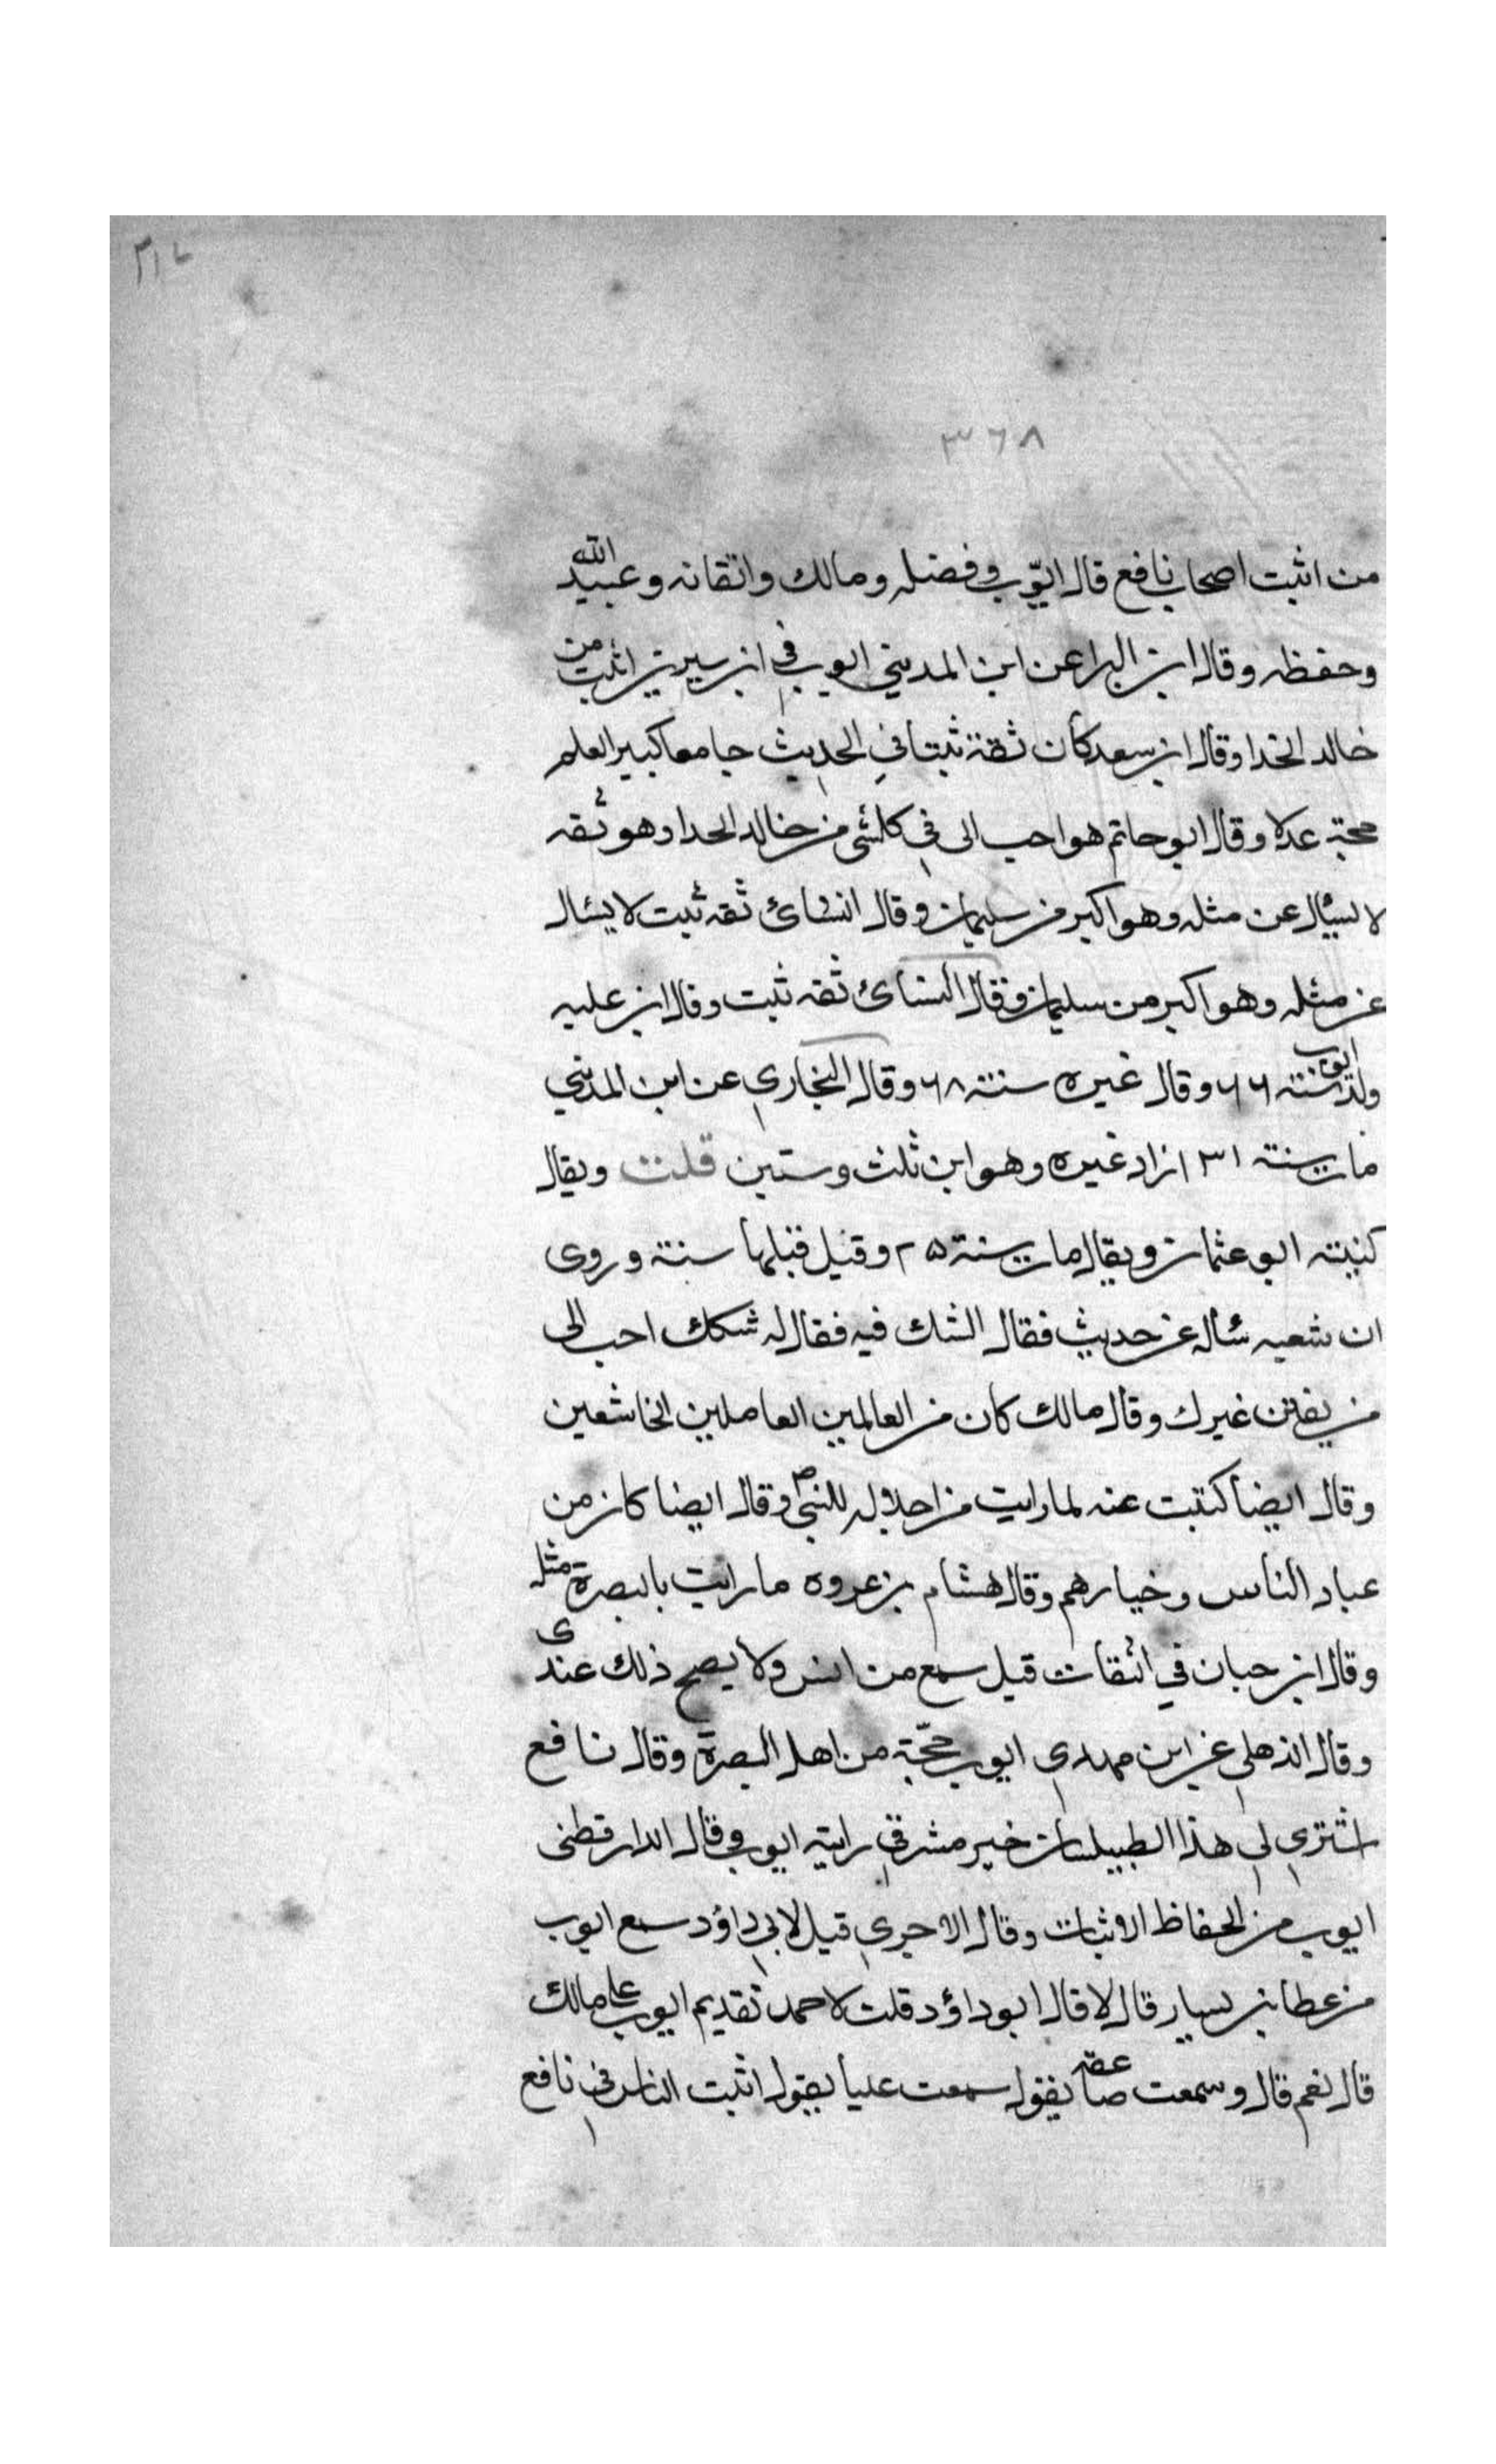 ٣١٧
٣٦٨
من اثبت اصحاب نافع قال ايوّب وفضله ومالك واتقانه وعبيد الله
وحفظه وقال ابن البراعن ابن المديني ايوب في ابن سيرين اثبت من
خالد الحذا وقال ابن سعد كان ثقة ثبتا في الحديث جامعا كبير العلم
حجة عدلا وقال ابو حاتم هو احب الى في كلشئ من خالد الحدا وهو ثقه
لا يسئال عن مثله وهو اكبر من سليمان وقال النسائ ثقه ثبت لا يسئال
عن مثله وهو اكبر من سليمان وقال النسائ ثقه ثبت وقال ابن عليه
ولد ايوب سنته ٦٦ وقال غيره سنته ٦٨ وقال البخاري عن ابن المديني
مات سنته ١٣١ زاد غيره وهو ابن ثلث وستين قلت ويقال
كنيته ابو عثمان ويقال مات سنة ٢٥ وقيل قبلها سنته وروى
ان شعبه سأله عن حديث فقال اشك فيه فقال له شكك احب الى
من يقين غيرك وقال مالك كان من العالمين العاملين الخاشعين
وقال ايضا كتبت عنه لما رايت من اجلاله للنبي ص وقال ايضا كان من
عباد الناس وخيارهم وقال هشام بن عروه ما رايت بالبصرة مثله
وقال ابن حبان في الثقات قيل سمع من انس ولا يصح ذلك عندى
وقال الذهلي عن ابن مهدي ايوب حجّة من اهل البصرة وقال نافع
اشترى لي هذا الطيلسان خير مشرقي رايته ايوب وقال الدارقطنى
ايوب من الحفاظ الاثبات وقال الاجري قيل لابي داؤد سمع ايوب
من عطا بن يسار قال لا قال ابو داؤد قلت لاحمد تقديم ايوب على مالك
قال نعم قال وسمعت صاعقه يقول سمعت عليا يقول اثبت الناس في نافع